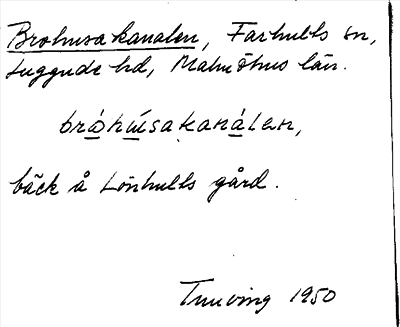 Brohusakanalen, Farhults sn,
Luggude hd, Malmöhus län.
bróhúsakanálen,
bäck å Lönhults gård.
1950